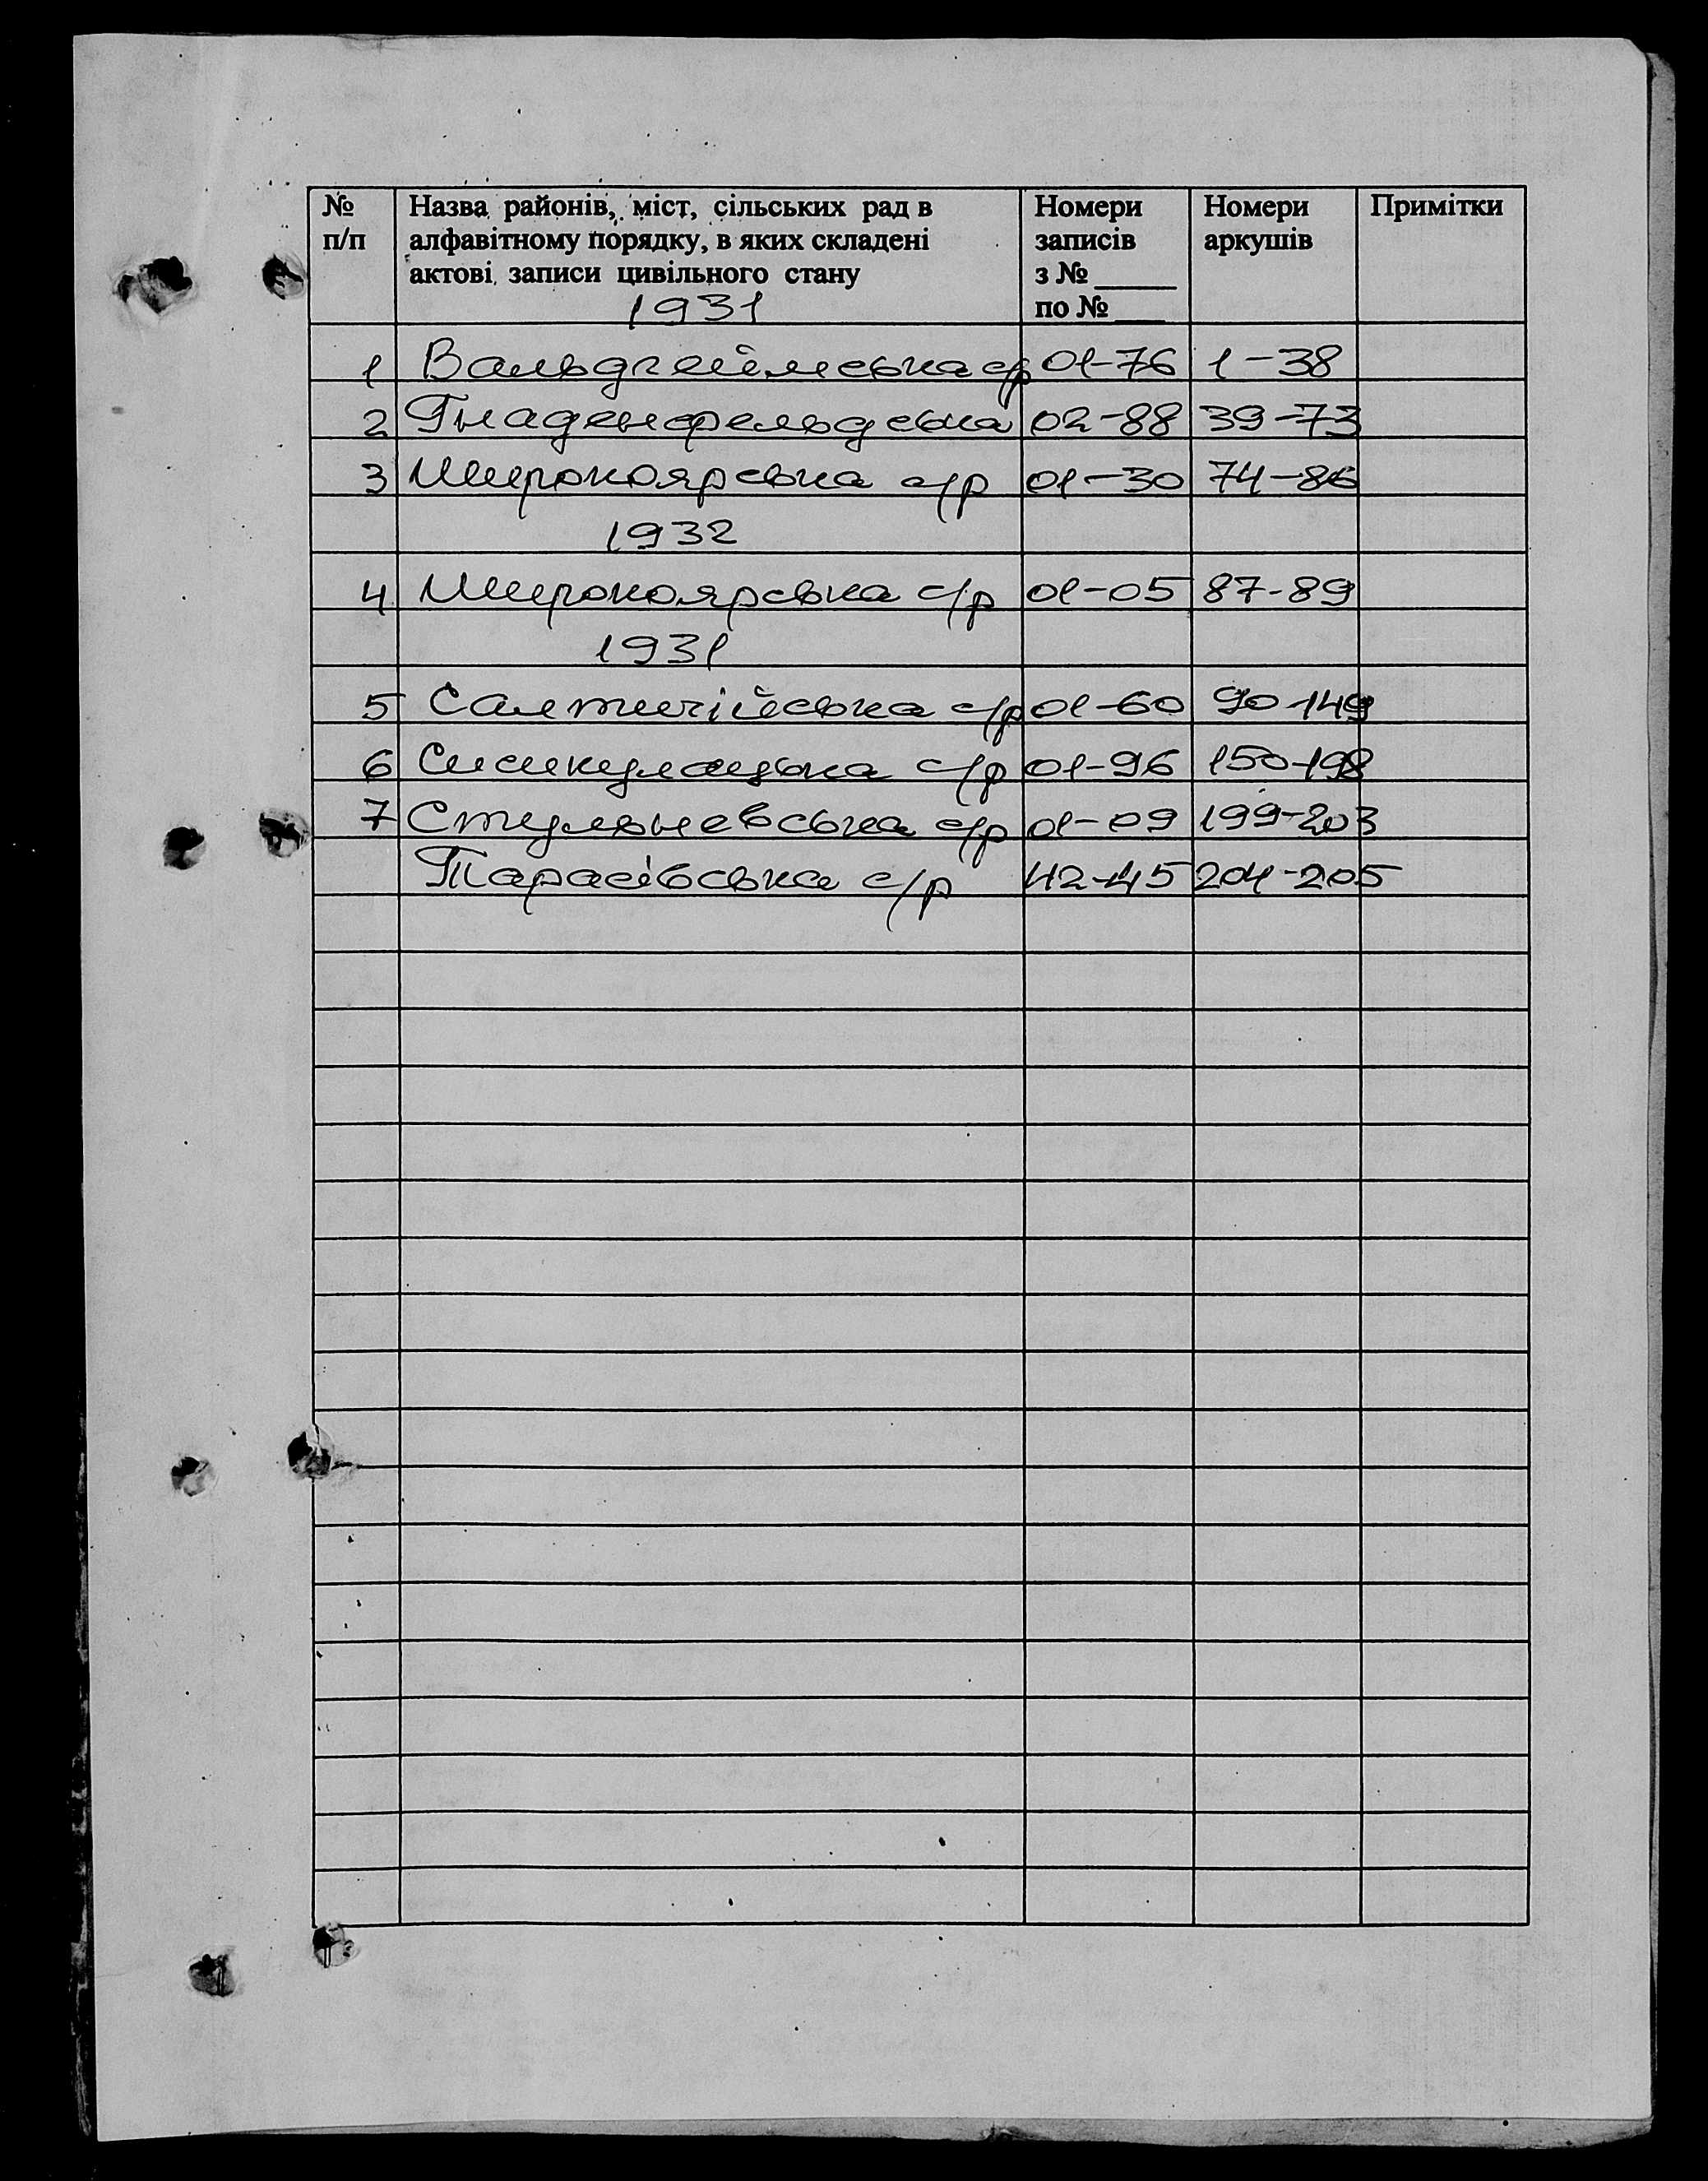 № п/п
Назва районів, міст, сільських рад в
алфавітному порядку, в яких складені
актові записи цивільного стану
Номери
записів
з № ______
по № ___
Номери
аркушів
Примітки
1931
1 Вальдгеймська с/р 01-76 1-38
2 Гнаденфельдська 02-88 39-73
3 Широкоярська с/р 01-30 74-86
1932
4 Широкоярська с/р 01-05 87-89
1931
5 Салтичійська с/р 01-60 90-149
6 с/р 01-96 150-198
7 Стульневська с/р 01-09 199-203
Тарасівська с/р 42-45 204-205